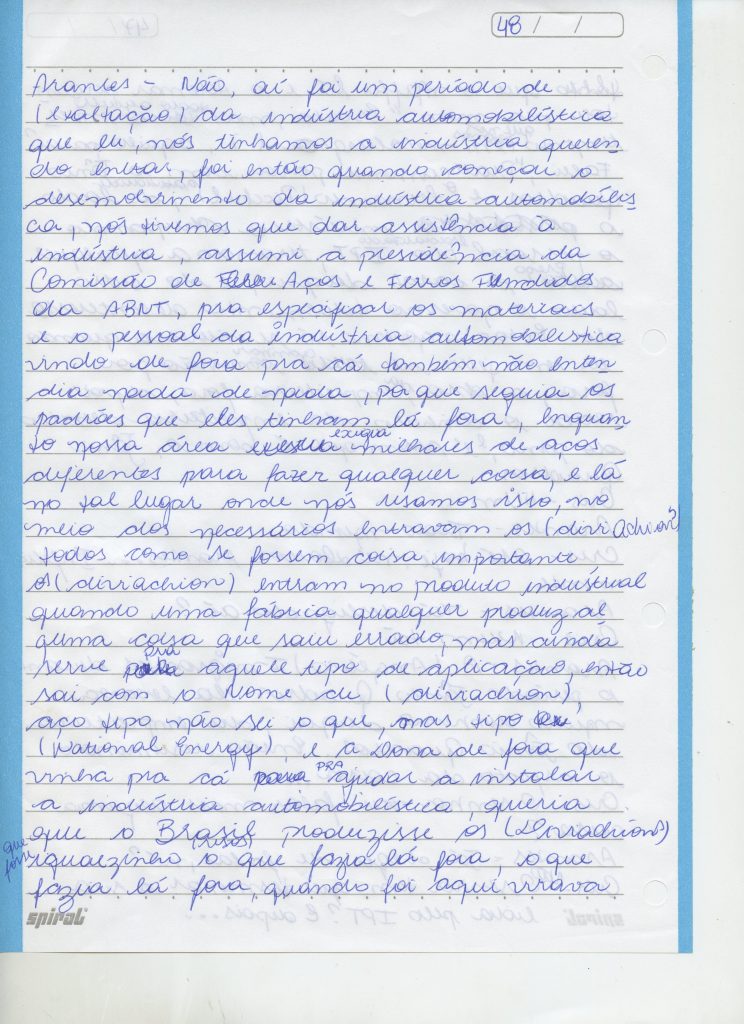 48 / /
Arantes - Não, aí foi um período de
(exaltação) da indústria automobilística
que eu, nós tínhamos a indústria queren
do entrar, foi então quando começou o
desenvolvimento da indústria automobilís
ca, nós tivemos que dar assistência à
indústria, assumi a presidência da
Comissão de Aços e Ferros Fundidos
da ABNT, pra especificar os materiais
e o pessoal da indústria automobilística
vindo de fora pra cá também não enten
dia nada de nada, porque seguia os
padrões que eles tinham lá fora, enquan
to nossa área exigia milhares de aços
diferentes para fazer qualquer coisa, e lá
no tal lugar onde nós usamos isso, no
meio dos necessários entravam os (dirriachion?
todos como se fossem coisa importante
os (dirriachion) entram no produto industrial
quando uma fábrica qualquer produz al
guma coisa que saiu errado, mas ainda
serve pra aquele tipo de aplicação, então
sai com o nome de (dirriachion),
aço tipo não sei o que, mas tipo
(National Energy), e a Dona de fora que
vinha pra cá PRA ajudar a instalar
a indústria automobilística, queria
que o Brasil produzisse os
que fosse igualzinho o que fazia lá fora, o que
fazia lá fora, quando foi aqui virava
spiral